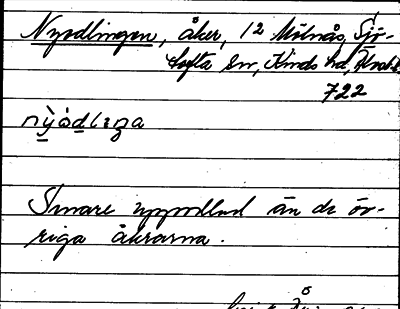 Nyodlingen, åker, 12 Mölnås, Sjö-
tofta sn, Kinds hd, Älvsb.
722
nỳòdlıŋa
Senare uppodlad än de öv-
riga åkrarna.